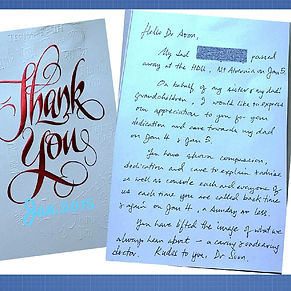 Thank
You
Hello Dr Soon,
My dad passed
away at the HDU, Mt Alvernia on Jan 5.
On behalf of my sister & my dad's
grandchildren, I would like to express
our appreciation to you for your
dedication and care towards my dad
on Jan 4 & Jan 5.
You have shown compassion,
dedication and care to explain & advise
as well as console each and everyone of
us each time you are called back time
& again on Jan 4, a Sunday no less.
You have lifted the image of what we
always hear about - a caring & endearing
doctor. Kudos to you, Dr Soon.